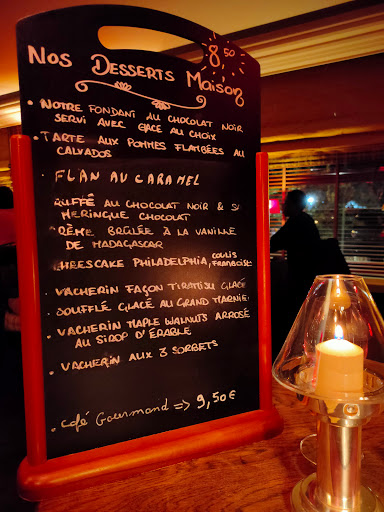 Nos Desserts Maison
8,50
• Notre fondant au chocolat noir
servi avec glace au choix
• Tarte aux pommes flambées au
calvados
Flan au caramel
au chocolat noir & s
meringue chocolat
rème brûlée à la vanille
de Madagascar
heescake Philadelphia, coulis
framboise
• Vacherin façon tiramisu glacé
• Soufflé glacé au Grand Marnie
• Vacherin maple walnuts arrosé
au sirop d'érable
• Vacherin aux 3 sorbets
• Café Gourmand => 9,50€